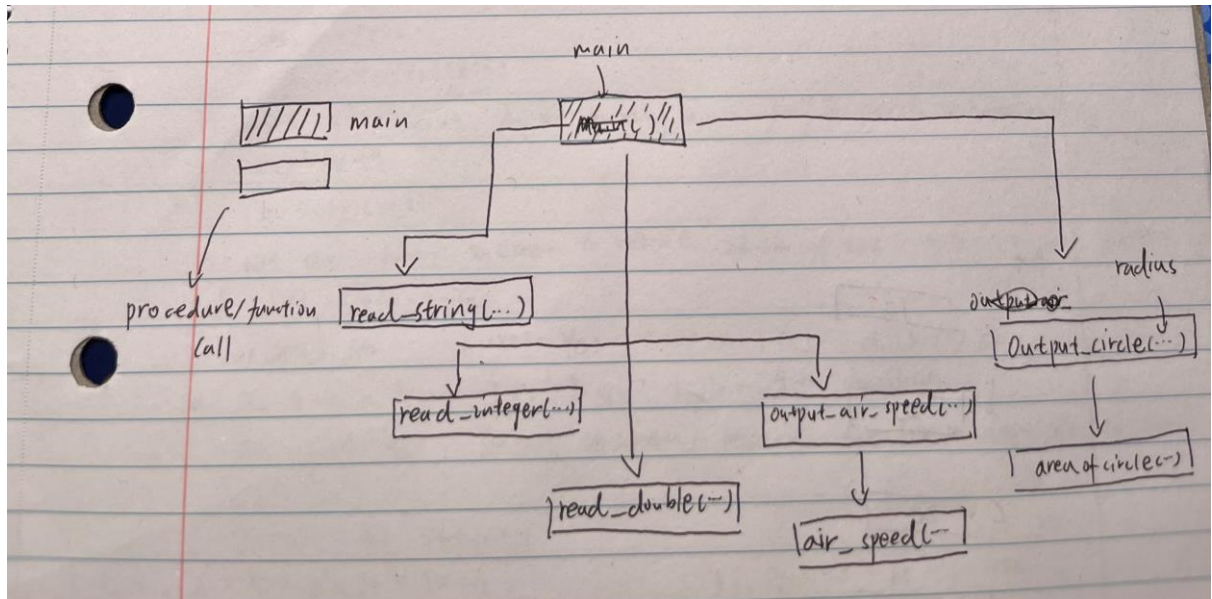 main
main
main()
radius
procedure/function
call
read_string(...)
output_air_
Output_circle(...)
read_integer(...)
output_air_speed(...)
area of circle(...)
read_double(...)
air_speed(...